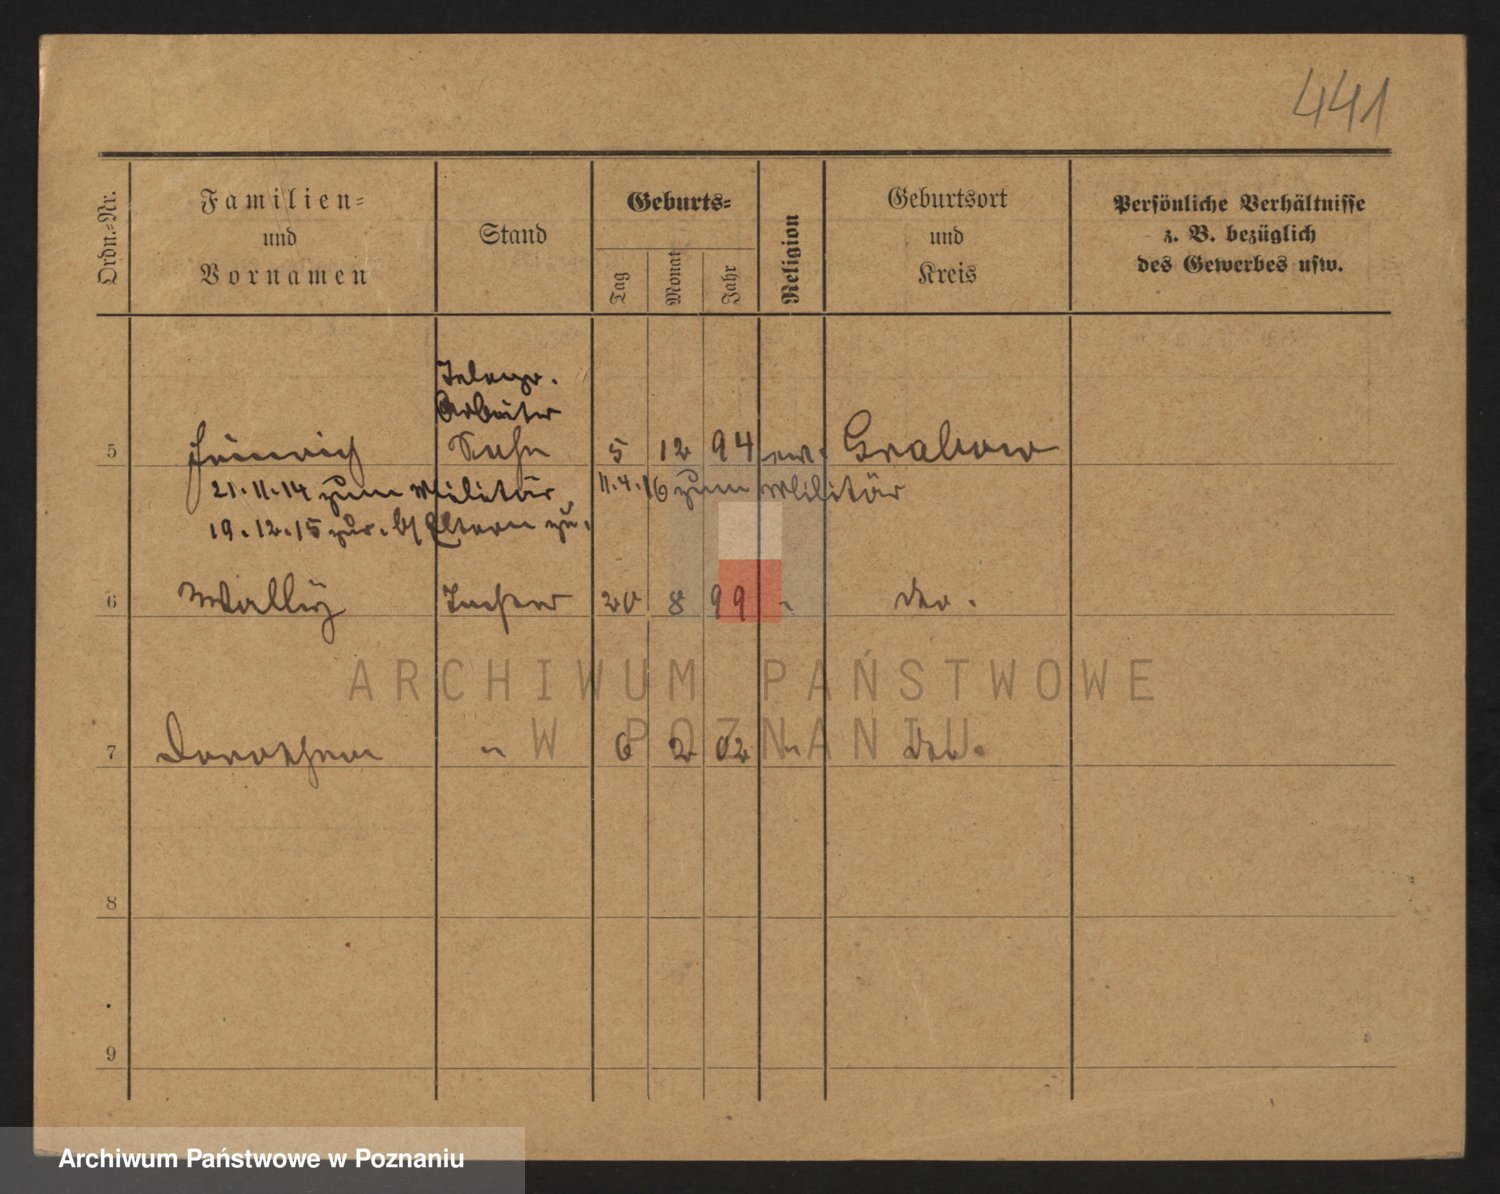 441
Ordn.-Nr.
Familien-
und
Vornamen
Stand
Geburts-
Tag
Monat
Jahr
Religion
Geburtsort
und
Kreis
Persönliche Verhältnisse
z. B. bezüglich
des Gewerbes usw.
Arbeiter
5 Heinrich Sohn 5 12 94 ev. Grabow
21.11.14 zum Militär 11.4.16 zum Militär
19.12.15 zur. Eltern zu.
6 Wally Tochter 20 8 99 " do.
ARCHIWUM PAŃSTWOWE
W POZNANIU
7 Dorothea " 6 2 02 " do.
8
9
Archiwum Państwowe w Poznaniu